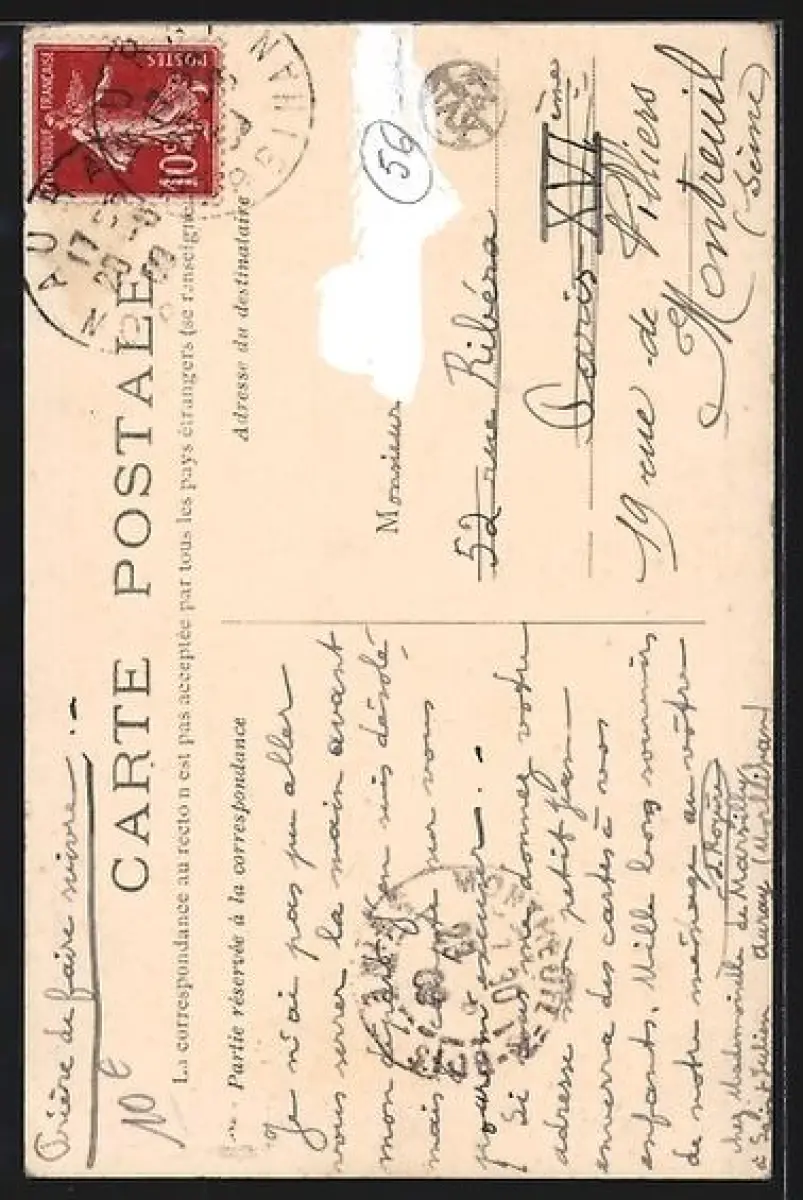 Prière de faire suivre.-
CARTE POSTALE
La correspondance au recto n'est pas acceptée par tous les pays étrangers (se renseigne
Partie réservée à la correspondance
Adresse du destinataire
10€
Je n'ai pas pu aller
vous serrer la main avant
mon départ j'en suis désolé
mais je compte sur vous
pour m'excuser.-
Si vous me donnez votre
adresse mon petit Jean
enverra des cartes à vos
enfants. Mille bons souvenirs
de notre ménage au vôtre
J. Rogue
chez Mademoiselle de Marsilly
à Saint Julien Auray (Morbihan)
REPUBLIQUE FRANÇAISE
POSTES
10c
AURAY
17
20
09
56
Monsieur
52 rue Ribéra
Paris XVIème
19 rue de Villiers
Montreuil
(Seine)